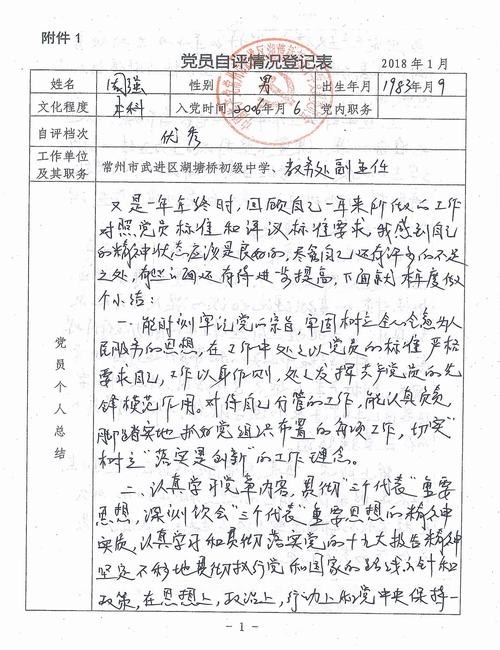 附件 1
党员自评情况登记表
2018 年 1 月
姓名 国强 性别 男 出生年月 1983年月9
文化程度 本科 入党时间 2006年月6 党内职务
自评档次 优秀
工作单位及其职务 常州市武进区湖塘桥初级中学、教务处副主任
党员个人总结
又是一年年终时,回顾自己一年来所做的工作
对照党员标准和评议标准要求,我感到自己
的精神状态应该是良好的,尽管自己还存许多的不足
之处,有些方面还有待进一步提高,下面就本年度做
个小结:
一、能时刻牢记党的宗旨,牢固树立全心全意为人
民服务的思想,在工作中处处以党员的标准严格
要求自己,工作以身作则,处处发挥共产党员的先
锋模范作用。对待自己分管的工作,能认真负责,
脚踏实地执行党组织布置的每项工作,切实
树立“落实是创新”的工作理念。
二、认真学习党章内容,贯彻“三个代表”重要
思想,深刻领会“三个代表”重要思想的精神
实质,认真学习和贯彻落实党的十九大报告精神
坚定不移地贯彻执行党和国家的路线方针和
政策,在思想上,政治上,行动上和党中央保持一
- 1 -